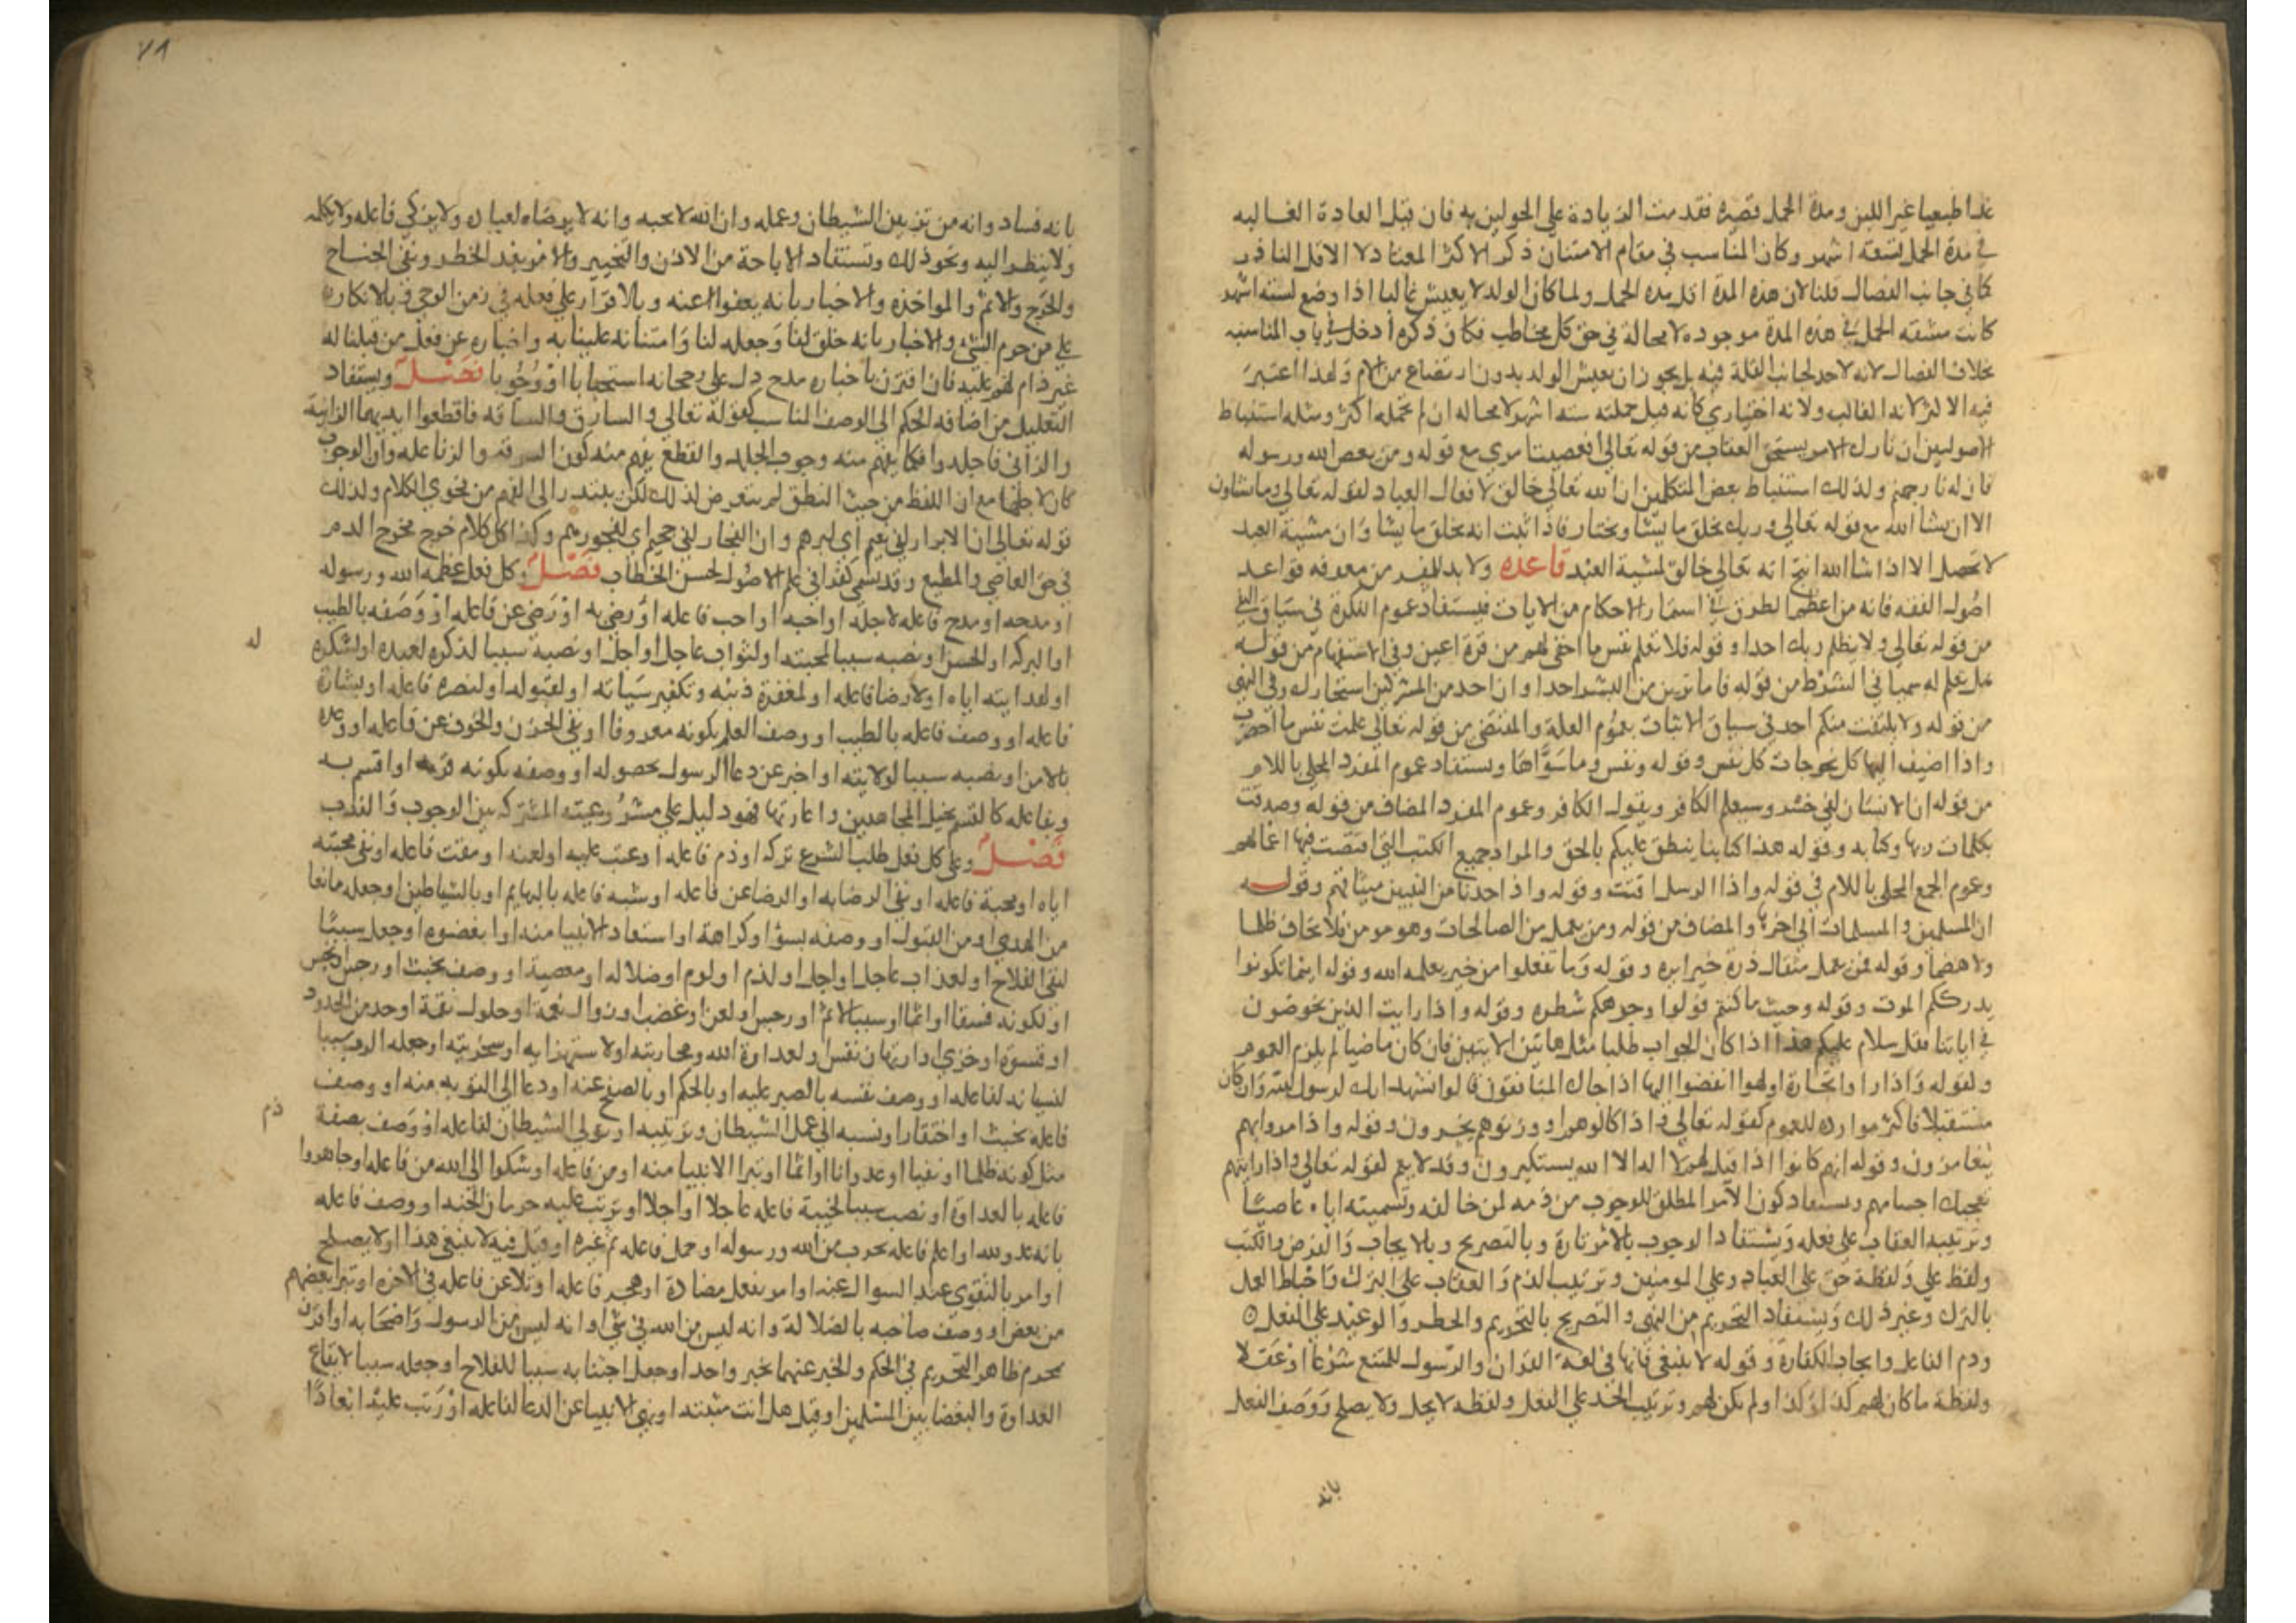 غذا طبيعيا غير اللبن ومدة الحمل قصيرة فقدمت الزيادة على الحولين به فان قيل العادة الغالبه
في مدة الحمل تسعة اشهر وكان المناسب في مقام الامتنان ذكر الاكثر المعتاد لا الاقل النادر
كما في جانب الفصال قلنا لان هذه المدة اقل مده الحمل ولما كان الولد لا يعيش غالبا اذا وضع لستة اشهر
كانت مشقه الحمل في هذه المدة موجوده لا محالة في حق كل مخاطب فكان ذكره ادخل في باب المناسبه
بخلاف الفصال لانه لا حد لجانب القلة فيه بل يجوز ان يعيش الولد بدون ارتضاع من الام ولهذا اعتبر
فيه الاكثر لانه الغالب ولانه اختياري كانه قيل حملته ستة اشهر لا محاله ان لم تحمله اكثر ومثله استنباط
الاصوليين ان تارك الامر يستحق العقاب من قوله تعالى افعصيت امري مع قوله ومن يعص الله ورسوله
فان له نار جهنم ولذلك استنباط بعض المتكلمين ان الله تعالى خالق لافعال العباد لقوله تعالى وما تشاون
الا ان يشا الله مع قوله تعالى وربك يخلق ما يشا ويختار فاذا ثبت انه يخلق ما يشا وان مشية العبد
لا تحصل الا اذا شا الله انتج انه تعالى خالق لمشية العبد قاعده ولا بد للمفسر من معرفه قواعد
اصول الفقه فانه من اعظم الطرق في استثمار الاحكام من الايات فيستفاد عموم النكرة في سياق النفي
من قوله تعالى ولا يظلم ربك احدا وقوله فلا تعلم نفس ما اخفي لهم من قرة اعين وفي الاستفهام من قوله
هل تعلم له سميا في الشرط من قوله فاما ترين من البشر احدا وان احد من المشركين استجارك وفي النهي
من قوله ولا يلتفت منكم احد في سياق الاثبات بعموم العلة والمقتضي من قوله تعالى علمت نفس ما احضرت
واذا اضيف اليها كل نحو جات كل نفس وقوله ونفس وما سواها ويستفاد عموم المفرد المحلى باللام
من قوله ان الانسان لفي خسر وسيعلم الكافر ويقول الكافر وعموم المفرد المضاف من قوله وصدقت
بكلمات ربها وكتابه وقوله هذا كتابنا ينطق عليكم بالحق والمراد جميع الكتب التي اقتصت فيها اعمالهم
وعموم الجمع المحلى باللام في قوله واذا الرسل اقتت وقوله واذ اخذنا من النبيين ميثاقهم وقوله
ان المسلمين والمسلمات الى اخرها والمضاف من قوله ومن يعمل من الصالحات وهو مومن فلا يخاف ظلما
ولا هضما وقوله فمن يعمل مثقال ذرة خيرا يره وقوله وما تفعلوا من خير يعلمه الله وقوله اينما تكونوا
يدرككم الموت وقوله وحيث ما كنتم فولوا وجوهكم شطره وقوله واذا رايت الذين يخوضون
في اياتنا فقل سلام عليكم هذا اذا كان الجواب طلبا مثل هاتين الايتين فان كان ماضيا لم يلزم العموم
ولقوله واذا راوا تجارة او لهوا انفضوا اليها اذا جاك المنافقون قالوا نشهد انك لرسول الله وان كان
مستقبلا فاكثر موارده للعموم كقوله تعالى واذا كالوهم او وزنوهم يخسرون وقوله واذا مروا بهم
يتغامزون وقوله انهم كانوا اذا قيل لهم لا اله الا الله يستكبرون وقد لا يعم لقوله تعالى واذا رايتهم
تعجبك اجسامهم ويستفاد كون الامر المطلق للوجوب من ذمه لمن خالفه وتسميته اياه عاصيا
وترتيبه العقاب على فعله ويستفاد الوجوب بالامر تارة وبالتصريح وبالايجاب والفرض والكتب
ولفظ على ولفظة حق على العباد وعلى المومنين وترتيب الذم والعقاب على الترك واحباط العمل
بالترك وغير ذلك ويستفاد التحريم من النهي والتصريح بالتحريم والحظر والوعيد على الفعل
وذم الفاعل وايجاب الكفارة وقوله لا ينبغي فانها في لغة القران والرسول للمنع شرعا او عقلا
ولفظة ما كان لهم كذا وكذا ولم يكن لهم وترتيب الحد على الفعل ولفظه لا يحل ولا يصلح ووصف الفعل
بانه
٧٨
بانه فساد وانه من تزيين الشيطان وعمله وان الله لا يحبه وانه لا يرضاه لعباده ولا يزكي فاعله ولا يكلمه
ولا ينظر اليه ونحو ذلك وتستفاد الاباحة من الاذن والتخيير والامر بعد الحظر ونفي الجناح
والحرج والاثم والمواخذه والاخبار بانه يعفوا عنه وبالاقرار على فعله في زمن الوحي وبالانكار
على من حرم الشي والاخبار بانه خلق لنا وجعله لنا وامتنانه علينا به واخباره عن فعل من قبلنا له
غير ذام لهم عليه فان اقترن باخباره مدح دل على رجحانه استحبابا او وجوبا فصل ويستفاد
التعليل من اضافه الحكم الى الوصف المناسب كقوله تعالى والسارق والسارقه فاقطعوا ايديهما الزانية
والزاني فاجلدوا فكما يفهم منه وجوب الجلد والقطع يفهم منه كون السرقه والزنا علة وان الوجوب
كان لاجلهما مع ان اللفظ من حيث النطق لم يتعرض لذلك لكن يتبادر الى الفهم من فحوي الكلام ولذلك
قوله تعالى ان الابرار لفي نعيم اي لبرهم وان الفجار لفي جحيم اي لفجورهم وكذا كل كلام خرج مخرج الذم
في حق العاصي والمطيع وقد يسمى هذا في علم الاصول لحن الخطاب فصل وكل فعل عظمه الله ورسوله
او مدحه او مدح فاعله لاجله او احبه او احب فاعله او رضي به او رضي عن فاعله او وصفه بالطيب
او البركه او الحسن او نصبه سببا لمحبته او لثواب عاجل او اجل او نصبه سببا لذكره لعبده او لشكره
له
او لهدايته اياه او لارضا فاعله او لمغفرة ذنبه وتكفير سياته او لقبوله او لنصره فاعله او بشارة
فاعله او وصف فاعله بالطيب او وصف الفعل بكونه معروفا او نفي الحزن والخوف عن فاعله او وعده
بالامن او نصبه سببا لولايته او اخبر عن دعا الرسول بحصوله او وصفه بكونه قربه او اقسم به
وبفاعله كالقسم بخيل المجاهدين واغارتها فهو دليل على مشروعيته المشتركه بين الوجوب والندب
فصل وعلى كل فعل طلب الشرع تركه او ذم فاعله او عتب عليه او لعنه او مقت فاعله او نفي محبته
اياه او محبة فاعله او نفي الرضا به او الرضا عن فاعله او شبه فاعله بالبهايم او بالشياطين او جعله مانعا
من الهدي او من القبول او وصفه بسوا او كراهة او استعاذ الانبيا منه او ابغضوه او جعل سببا
لنفي الفلاح او لعذاب عاجل او اجل او لذم او لوم او ضلاله او معصية او وصف بخبث او رجس او نجس
او لكونه فسقا او اثما او سببا لاثم او رجس او لعن او غضب او زوال نعمة او حلول نقمة او حد من الحدود
او قسوة او خزي او ارتهان نفس او لعداوة الله ومحاربته او لاستهزا به او سخريته او جعله الرب سببا
لنسيانه لفاعله او وصف نفسه بالصبر عليه او بالحلم او بالصفح عنه او دعا الى التوبه منه او وصف
فاعله بخبث او احتقار او نسبه الى عمل الشيطان وتزيينه او تولي الشيطان لفاعله او وصف بصفة
ذم
مثل كونه ظلما او بغيا او عدوانا او اثما او تبرا الانبيا منه او من فاعله او شكوا الى الله من فاعله او جاهروا
فاعله بالعداوة او نصب سببا لخيبة فاعله عاجلا او اجلا او ترتب عليه حرمان الجنة او وصف فاعله
بانه عدو لله او اعلم فاعله بحرب من الله ورسوله او حمل فاعله اثم غيره او قيل فيه لا ينبغي هذا او لا يصلح
او امر بالتقوى عند السوال عنه او امر بفعل مضاده او هجر فاعله او تلاعن فاعله في الاخره او تبرا بعضهم
من بعض او وصف صاحبه بالضلالة وانه ليس من الله في شي او انه ليس من الرسول واصحابه او اقترن
بمحرم ظاهر التحريم في الحكم والخبر عنهما بخبر واحد او جعل اجتنابه سببا للفلاح او جعله سببا لايقاع
العداوة والبغضا بين المسلمين او قيل هل انت منته او نهي الانبيا عن الدعا لفاعله او رتب عليه ابعادا